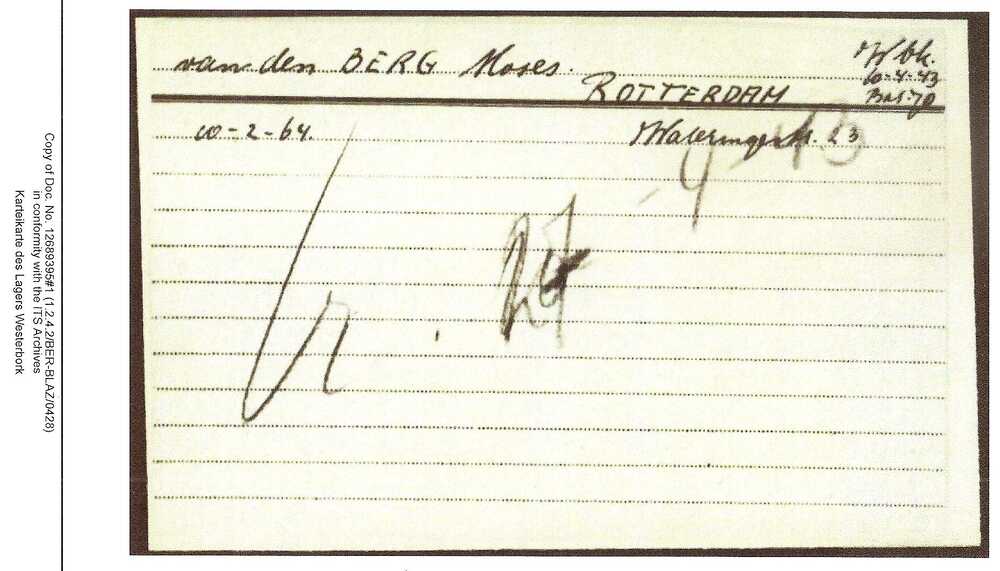 van den BERG Moses.
Wbk.
10-4-43
Bar. 70
ROTTERDAM
10-2-64.
23
Copy of Doc. No. 12689395#1 (1.2.4.2/BER-BLAZ/0428)
in conformity with the ITS Archives
Karteikarte des Lagers Westerbork